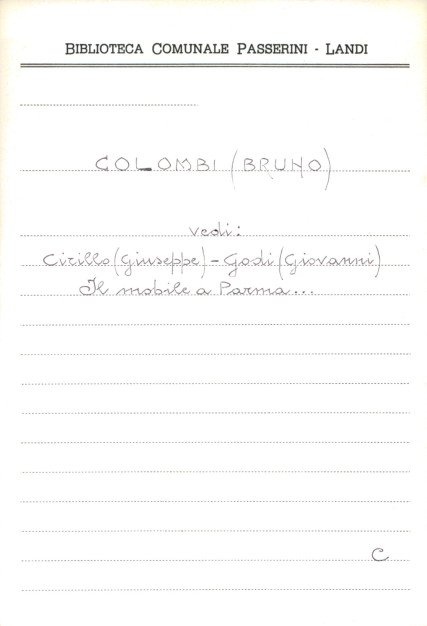 BIBLIOTECA COMUNALE PASSERINI - LANDI
COLOMBI (BRUNO)
vedi:
Cirillo (Giuseppe) - Godi (Giovanni)
Il mobile a Parma...
C